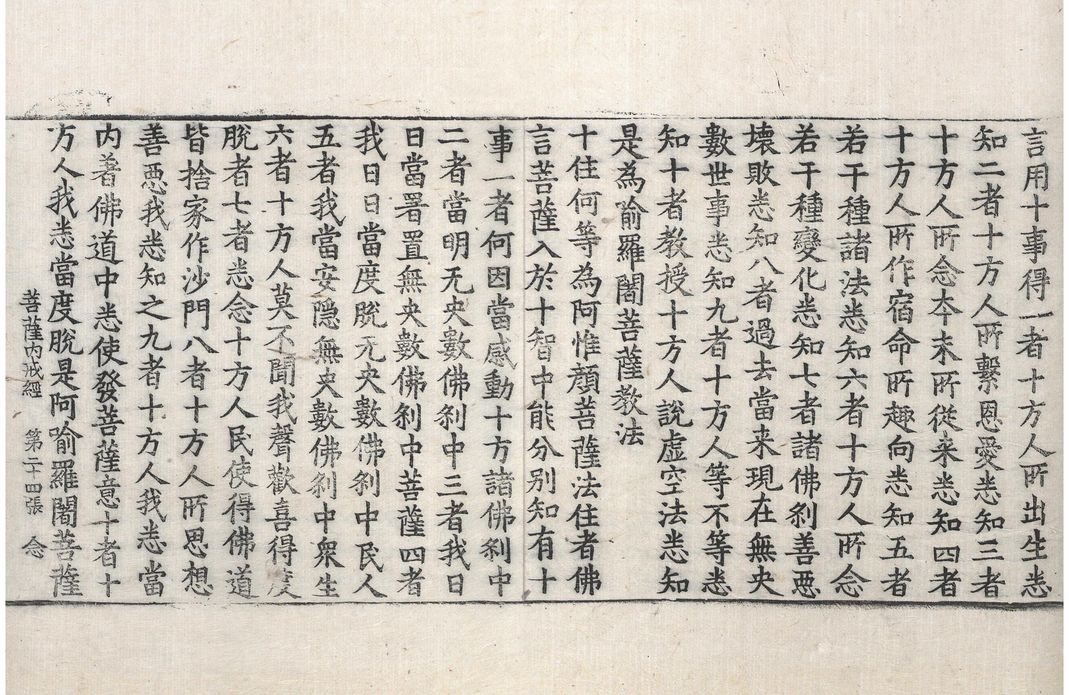 言用十事得一者十方人所出生悉
知二者十方人所繫恩愛悉知三者
十方人所念夲末所従来悉知四者
十方人所作宿命所趣向悉知五者
若干種諸法悉知六者十方人所念
若干種變化悉知七者諸佛刹善惡
壞敗悉知八者過去當来現在無央
數世事悉知九者十方人等不等悉
知十者教授十方人說虛空法悉知
是為喻羅闍菩薩教法
十住何等為阿惟顔菩薩法住者佛
言菩薩入於十智中能分别知有十
事一者何因當感動十方諸佛刹中
二者當明无央數佛刹中三者我日
日當署置無央數佛刹中菩薩四者
我日日當度脫无央數佛刹中民人
五者我當安隐無央數佛刹中衆生
六者十方人莫不聞我聲歡喜得度
脫者七者悉念十方人民使得佛道
皆捨家作沙門八者十方人所思想
善惡我悉知之九者十方人我悉當
内著佛道中悉使發菩薩意十者十
方人我悉當度脫是阿喻羅闍菩薩
菩薩内戒經 第二十四張 念